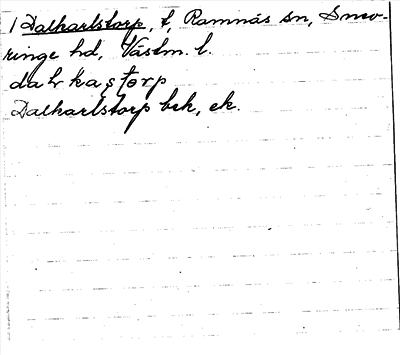 1 Dalkarlstorp, t, Ramnäs sn, Snev-
ringe hd, Västm. l.
dalrkaştorp
Dalkarlstorp bek, ek.